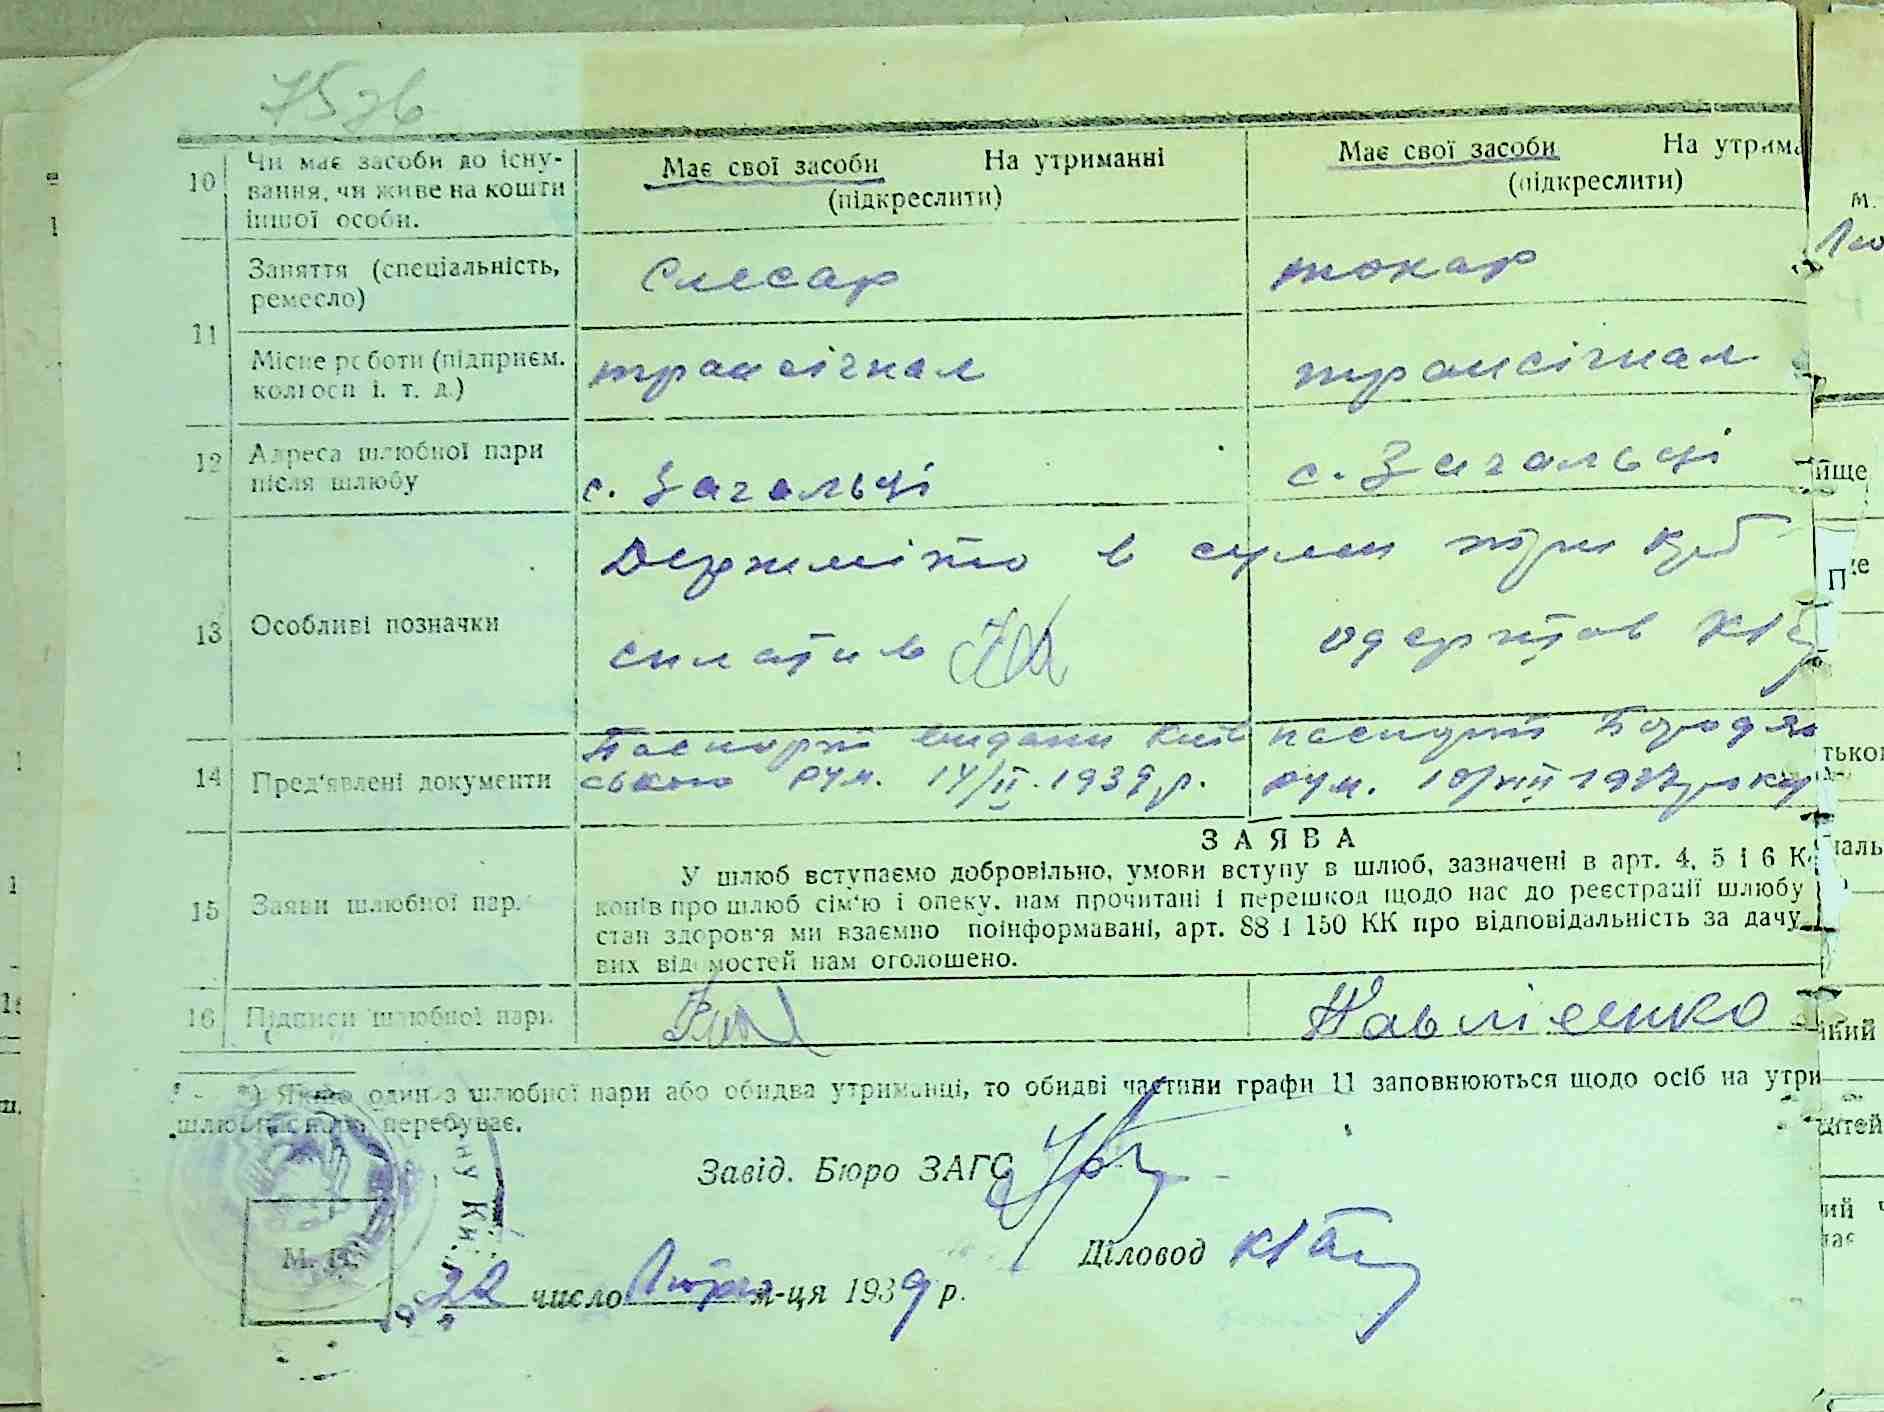 75 зв
10 Чи має засоби до існу-
вання, чи живе на кошти
іншої особи.
Має свої засоби На утриманні
(підкреслити)
Має свої засоби На утрима
(підкреслити)
11 Заняття (спеціальність,
ремесло)
Слесар
токар
Місце роботи (підприєм.
колгосп і. т. д.)
трансігнал
трансігнал
12 Адреса шлюбної пари
після шлюбу
с. Загальці
с. Загальці
13 Особливі позначки
Держмито в сумі три крб
сплатив
одержав
14 Пред'явлені документи
Паспорт видани Київ
ською РУМ. 14/II. 1939 р.
паспорт Бородян
рум. 10/VIII
15 Заяви шлюбної пари
ЗАЯВА
У шлюб вступаємо добровільно, умови вступу в шлюб, зазначені в арт. 4, 5 і 6 К
конів про шлюб сім'ю і опеку, нам прочитані і перешкод щодо нас до реєстрації шлюбу
стан здоров'я ми взаємно поінформавані, арт. 88 і 150 КК про відповідальність за дачу
вих відомостей нам оголошено.
16 Підписи шлюбної пари
Павліенко
*) Якщо один з шлюбної пари або обидва утриманці, то обидві частини графи 11 заповнюються щодо осіб на утри
перебуває.
Завід. Бюро ЗАГС
Діловод
М. П.
22 число Лютого м-ця 1939 р.